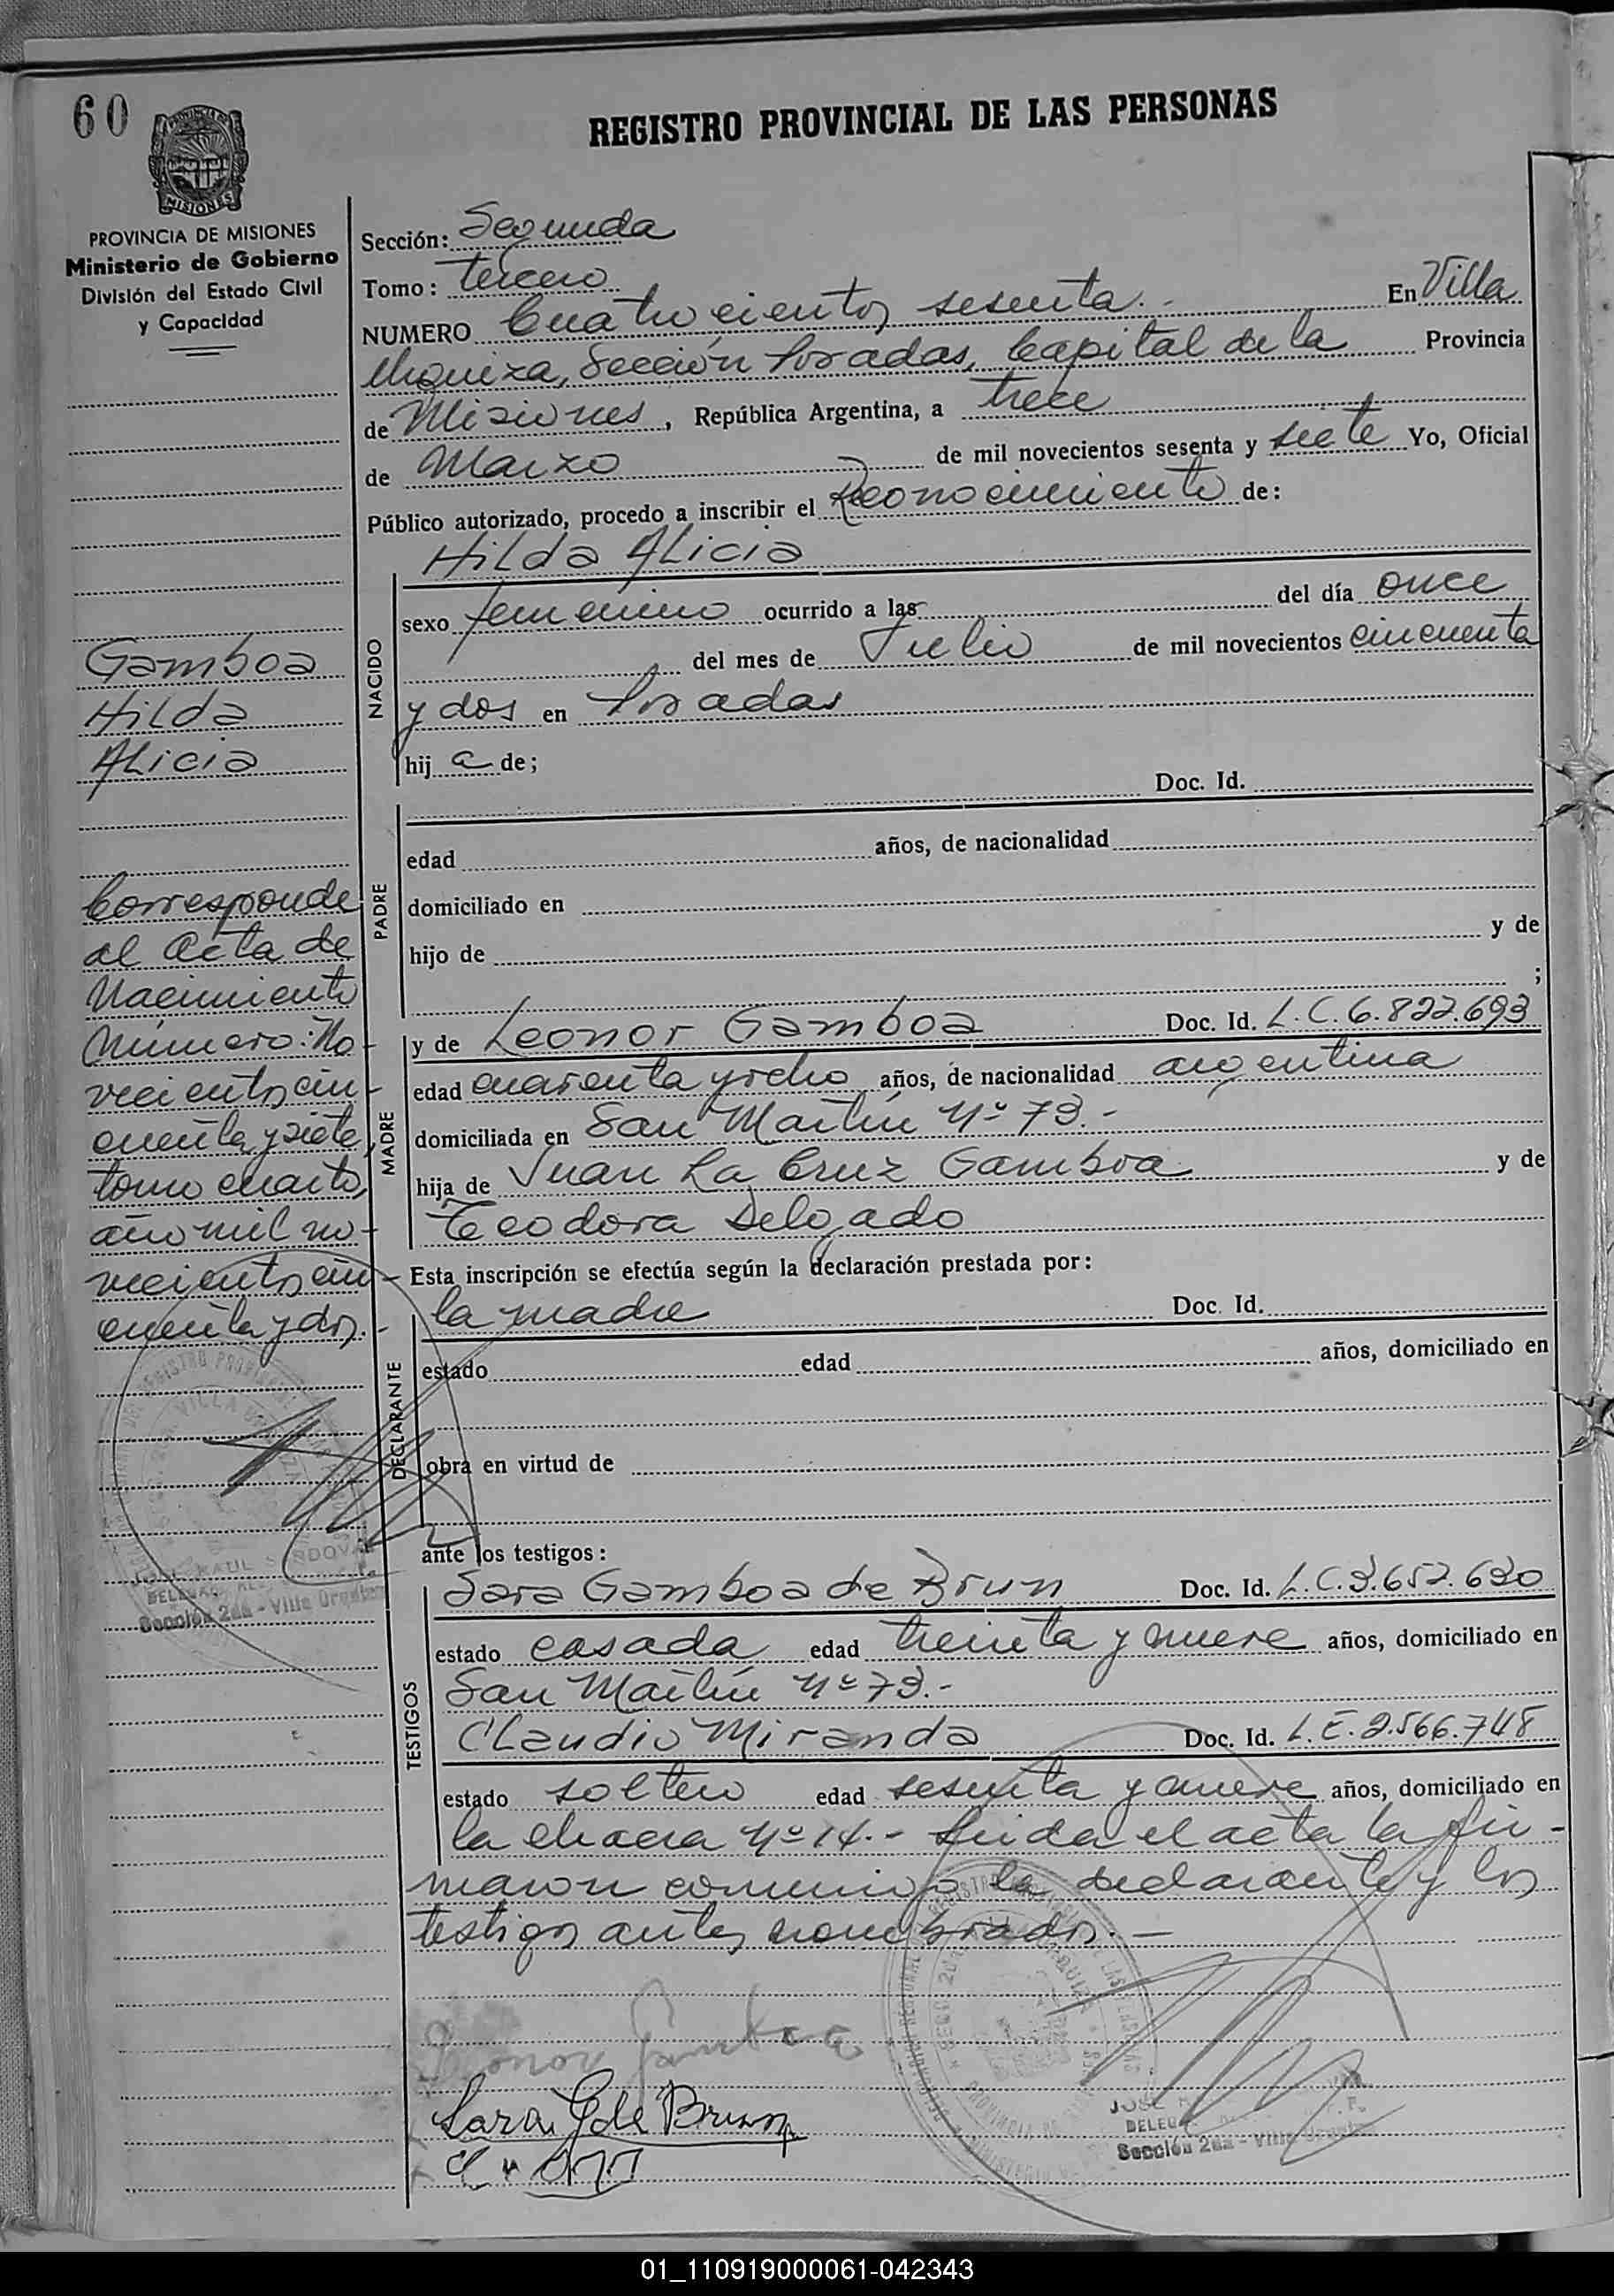 60
REGISTRO PROVINCIAL DE LAS PERSONAS
MISIONES
PROVINCIA DE MISIONES
Ministerio de Gobierno
División del Estado Civil
y Capacidad
Sección: Segunda
Tomo: tercero
NUMERO Cuatrocientos sesenta.- En Villa
Urquiza, Sección Posadas, Capital de la Provincia
de Misiones, República Argentina, a trece
de Marzo de mil novecientos sesenta y siete Yo, Oficial
Público autorizado, procedo a inscribir el Reconocimiento de:
Hilda Alicia
NACIDO
sexo femenino ocurrido a las del día once
del mes de Julio de mil novecientos cincuenta
y dos en Posadas
hij a de;
Gamboa
Hilda
Alicia
PADRE
Doc. Id.
edad años, de nacionalidad
domiciliado en
hijo de y de
;
MADRE
y de Leonor Gamboa Doc. Id. L.C. 6.822.693
edad cuarenta y ocho años, de nacionalidad argentina
domiciliada en San Martín Nº 73.-
hija de Juan La Cruz Gamboa y de
Teodora Delgado
Corresponde
al Acta de
Nacimiento
Número: No-
vecientos cin-
cuenta y siete,
tomo cuarto,
año mil no-
vecientos cin-
cuenta y dos.-
Esta inscripción se efectúa según la declaración prestada por:
DECLARANTE
la madre Doc. Id.
estado edad años, domiciliado en
obra en virtud de
ante los testigos:
RAUL SANDOVAL
Sección 2da - Villa Urquiza
TESTIGOS
Sara Gamboa de Brun Doc. Id. L.C. 3.652.630
estado casada edad treinta y nueve años, domiciliado en
San Martín Nº 73.-
Claudio Miranda Doc. Id. L.E. 2.566.748
estado soltero edad sesenta y nueve años, domiciliado en
la chacra Nº 14.- Leída el acta la fir-
maron conmigo la declarante y los
testigos antes nombrados.-
Leonor Gamboa
Sara G de Brun
JOSE
DELEG
Sección 2da - Villa Urquiza
01_110919000061-042343